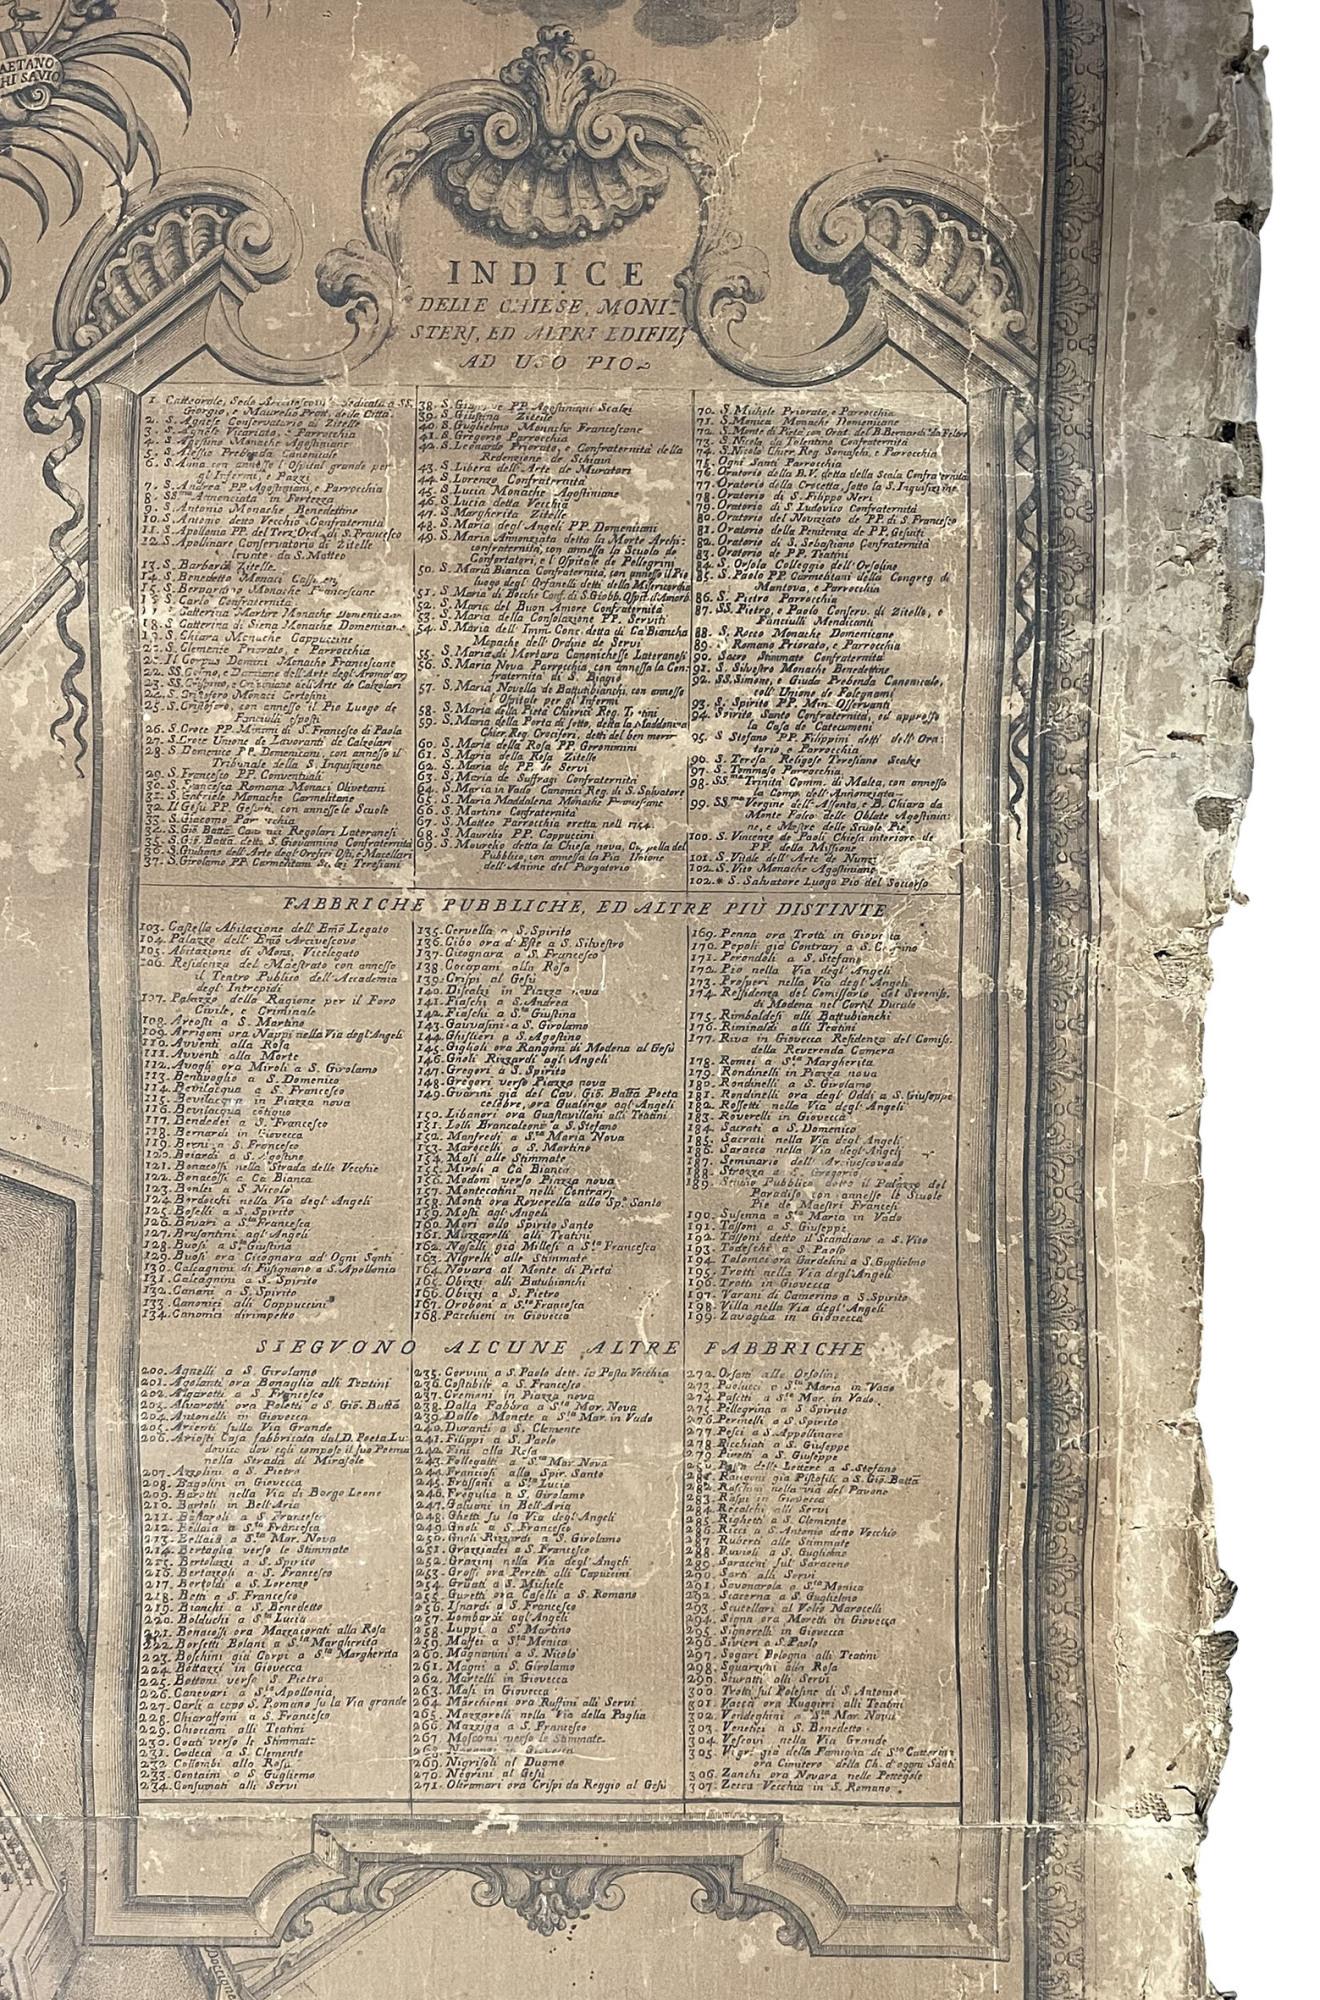 AETANO
HI SAVIO
INDICE
DELLE CHIESE, MONI-
STERJ, ED ALTRI EDIFIZJ
AD USO PIO
1. Cattedrale, Sede Arcivescovile dedicata a SS.
Giorgio, e Maurelio Prott. della Citta
2. S. Agnese Conservatorio di Zitelle
3. S. Agnese Vicariato, e Parrocchia
4. S. Agostino Monache Agostiniane
5. S. Alessio Prebenda Canonicale
6. S. Anna con annesso l'Ospital grande per
gl'Infermi, e Pazzi
7. S. Andrea PP. Agostiniani, e Parrocchia
8. SS.ma Annonciata in Fortezza
9. S. Antonio Monache Benedettine
10. S. Antonio detto Vecchio Confraternita
11. S. Apollonia PP. del Terz'Ord. di S. Francesco
12. S. Apollinare Conservatorio di Zitelle
levate da S. Matteo
13. S. Barbara Zitelle
14. S. Benedetto Monaci
15. S. Bernardino Monache Francescane
S. Carlo Confraternita
S. Catterina Martire Monache Domenicane
18. S. Catterina di Siena Monache Domenicane
19. S. Chiara Monache Cappuccine
S. Clemente Priorato, e Parrocchia
Il Corpus Domini Monache Francescane
22. SS. Cosmo, e Damiano dell'Arte degl'Aromatarj
23. SS. Crispino, e Crispiniano dell'Arte de Calzolari
24. S. Cristoforo Monaci Certosini
25. S. Cristoforo, con annesso il Pio Luogo de
Fanciulli esposti
26. S. Croce PP. Minimi di S. Francesco di Paola
27. S. Croce Unione de Lavoranti de Calzolari
28. S. Domenico PP. Domenicani, con annesso il
Tribunale della S. Inquisizione
29. S. Francesco PP. Conventuali
30. S. Francesca Romana Monaci Olivetani
31. S. Gabriele Monache Carmelitane
32. Il Gesù PP. Gesuiti, con annesse le Scuole
33. S. Giacomo Parrocchia
34. S. Giō. Battā. Canonici Regolari Lateranesi
35. S. Giō. Battā. detto S. Giovannino Confraternità
36. S. Giuliano dell'Arte degl'Orefici Osti, e Macellari
37. S. Girolamo PP. Carmelitani Scalzi Teresiani
38. S. Giuseppe PP. Agostiniani Scalzi
39. S. Giustina Zitelle
40. S. Guglielmo Monache Francescane
41. S. Gregorio Parrocchia
42. S. Leonardo Priorato, e Confraternità della
Redenzione de Schiavi
43. S. Libera dell'Arte de Muratori
44. S. Lorenzo Confraternità
45. S. Lucia Monache Agostiniane
46. S. Lucia detta Vecchia
47. S. Margherita Zitelle
48. S. Maria degl'Angeli PP. Domenicani
49. S. Maria Annonziata detta la Morte Archi-
confraternità, con annesso la Scuola de
Confortatori, e l'Ospitale de Pellegrini
50. S. Maria Bianca Confraternità, con annesso il Pio
luogo degl'Orfanelli detti della Misericordia
51. S. Maria di Bocche Conf. di S. Giobb. Ospit. d'Amorb.
52. S. Maria del Buon Amore Confraternità
53. S. Maria della Consolazione PP. Serviti
54. S. Maria dell'Imm. Conc. detta di Ca'Bianca
Monache dell'Ordine de Servi
55. S. Maria di Mortara Canonichesse Lateranesi
56. S. Maria Nova Parrocchia, con annessa la Con
fraternita di S. Biagio
57. S. Maria Novella de Battubianchi, con annesso
l'Ospitale per gl'Infermi
58. S. Maria della Pietà Chierici Reg. Teatini
59. S. Maria della Porta di sotto, detta la Madonnina
Chier. Reg. Crociferi, detti del ben morir
60. S. Maria della Rosa PP. Geronimini
61. S. Maria della Rosa Zitelle
62. S. Maria de PP. de Servi
63. S. Maria de Suffragi Confraternità
64. S. Maria in Vado Canonici Reg. di S. Salvatore
65. S. Maria Maddalena Monache Francescane
66. S. Martino Confraternità
67. S. Matteo Parrocchia eretta nell 1154.
68. S. Maurelio PP. Cappuccini
69. S. Maurelio detta la Chiesa nova, Cappella del
Pubblico, con annessa la Pia Unione
dell'Anime del Purgatorio
70. S. Michele Priorato, e Parrocchia
71. S. Monica Monache Domenicane
72. S. Monte di Pietà con Orat. del B. Bernardi. da Feltre
73. S. Nicola da Tolentino Confraternità
74. S. Nicolò Chier. Reg. Somaschi, e Parrocchia
75. Ogni Santi Parrocchia
76. Oratorio della B.V. detta della Scala Confraternita
77. Oratorio della Crocetta, sotto la S. Inquisizione
78. Oratorio di S. Filippo Neri
79. Oratorio di S. Ludovico Confraternità
80. Oratorio del Nonziato de PP. di S. Francesco
81. Oratorio della Penitenza de PP. Gesuiti
82. Oratorio di S. Sebastiano Confraternità
83. Oratorio de PP. Teatini
84. S. Orsola Colleggio dell'Orsoline
85. S. Paolo PP. Carmelitani della Congreg. di
Mantova, e Parrocchia
86. S. Pietro Parrocchia
87. SS. Pietro, e Paolo Conserv. di Zitelle, e
Fanciulli Mendicanti
88. S. Rocco Monache Domenicane
89. S. Romano Priorato, e Parrocchia
90. Sacre Stimmate Confraternità
91. S. Silvestro Monache Benedettine
92. SS. Simone, e Giuda Prebenda Canonicale,
coll'Unione de Falegnami
93. S. Spirito PP. Min. Osservanti
94. Spirito Santo Confraternità, ed appresso
la Casa de Catecumeni
95. S. Stefano PP. Filippini detti dell'Ora-
torio, e Parrocchia
96. S. Teresa Religose Teresiane Scalze
97. S. Tommaso Parrocchia
98. SS.ma Trinità Comm. di Malta, con annessa
la Comp. dell'Annonziata
99. SS.ma Vergine dell'Assonta, e B. Chiara da
Monte Falco delle Oblate Agostinia-
ne, e Mastre delle Scuole Pie
100. S. Vincenzo de Paoli Chiesa interiore de
PP. della Missione
101. S. Vitale dell'Arte de Nunzj
102. S. Vito Monache Agostiniane
102.* S. Salvatore Luogo Pio del Soccorso
FABBRICHE PUBBLICHE, ED ALTRE PIÙ DISTINTE
103. Castello Abitazione dell'Emō Legato
104. Palazzo dell'Emō Arcivescovo
105. Abitazione di Mons. Vicelegato
106. Residenza del Maestrato con annesso
il Teatro Publico dell'Accademia
degl'Intrepidi
107. Palazzo della Ragione per il Foro
Civile, e Criminale
108. Areosti a S. Martino
109. Arrigoni ora Nappi nella Via degl'Angeli
110. Avventi alla Rosa
111. Avventi alla Morte
112. Avogli ora Miroli a S. Girolamo
113. Bentivoglio a S. Domenico
114. Bevilacqua a S. Francesco
115. Bevilacqua in Piazza nova
116. Bevilacqua cōtiguo
117. Bendedei a S. Francesco
118. Bernardi in Giovecca
119. Berni a S. Francesco
120. Boiardi a S. Agostino
121. Bonacossi nella Strada delle Vecchie
122. Bonacossi a Ca Bianca
123. Bonlei a S. Nicolò
124. Bordocchi nella Via degl'Angeli
125. Boselli a S. Spirito
126. Bovari a S.ta Francesca
127. Brusantini agl'Angeli
128. Buosi a S.ta Giustina
129. Buosi ora Cicognara ad'Ogni Santi
130. Calcagnini di Fusignano a S. Apollonia
131. Calcagnini a S. Spirito
132. Canani a S. Spirito
133. Canonici alli Cappuccini
134. Canonici dirimpetto
135. Cervella a S. Spirito
136. Cibo ora d'Este a S. Silvestro
137. Cicognara a S. Francesco
138. Cocapani alla Rosa
139. Crispi al Gesù
140. Distalzi in Piazza nova
141. Fiaschi a S. Andrea
142. Fiaschi a S.ta Giustina
143. Gavvasini a S. Girolamo
144. Ghistieri a S. Agostino
145. Giglioli ora Rangoni di Modena al Gesù
146. Gnoli Rizzardi agl'Angeli
147. Gregori a S. Spirito
148. Gregori verso Piazza nova
149. Gvarini già del Cav. Giō. Battā Poeta
celebre, ora Gualengo agl'Angeli
150. Libanori ora Guastavillani alli Teatini
151. Lolli Brancaleoni a S. Stefano
152. Manfredi a S.ta Maria Nova
153. Marocelli a S. Martino
154. Masi alle Stimmate
155. Miroli a Cà Bianca
156. Modoni verso Piazza nova
157. Montecatini nelli Contrarj
158. Monti ora Roverella allo Sp.o Santo
159. Mosti agl'Angeli
160. Mori allo Spirito Santo
161. Muzzarelli alli Teatini
162. Naselli già Millesi a S.ta Francesca
163. Nigrelli alle Stimmate
164. Novara al Monte di Pietà
165. Obizzi alli Batubianchi
166. Obizzi a S. Pietro
167. Oroboni a S.ta Francesca
168. Pacchieni in Giovecca
169. Penna ora Trotti in Giovecca
170. Pepoli già Contrarj a S. Crispino
171. Perondoli a S. Stefano
172. Pio nella Via degl'Angeli
173. Prosperi nella Via degl'Angeli
174. Ressidenza del Comissario del Sereniss.
di Modena nel Cortil Ducale
175. Rimbaldesi alli Battubianchi
176. Riminaldi alli Teatini
177. Riva in Giovecca Residenza del Comiss.
della Reverenda Camera
178. Romei a S.ta Margherita
179. Rondinelli in Piazza nova
180. Rondinelli a S. Girolamo
181. Rondinelli ora degl'Oddi a S. Giuseppe
182. Rossetti nella Via degl'Angeli
183. Roverelli in Giovecca
184. Sacrati a S. Domenico
185. Sacrati nella Via degl'Angeli
186. Saracco nella Via degl'Angeli
187. Seminario dell'Arcivescovado
188. Strozza a S. Gregorio
189. Studio Pubblico detto il Palazzo del
Paradiso con annesse le Scuole
Pie de Maestri Francesi
190. Susenna a S.ta Maria in Vado
191. Tassoni a S. Giuseppe
192. Tassoni detto il Scandiano a S. Vito
193. Todeschi a S. Paolo
194. Tolomei ora Gardelini a S. Guglielmo
195. Trotti nella Via degl'Angeli
196. Trotti in Giovecca
197. Varani di Camerino a S. Spirito
198. Villa nella Via degl'Angeli
199. Zavaglia in Giovecca
SIEGVONO ALCUNE ALTRE FABBRICHE
200. Agnelli a S. Girolamo
201. Agolanti ora Bonaglia alli Teatini
202. Algarotti a S. Francesco
203. Alvarotti ora Poletti a S. Giō. Battā
204. Antonelli in Giovecca
205. Arienti sulla Via Grande
206. Ariosti Casa fabbricata dal D. Poeta Lu-
dovico dov'egli compose il suo Poema
nella Strada di Mirasole
207. Azzolini a S. Pietro
208. Bagolini in Giovecca
209. Barotti nella Via di Borgo Leone
210. Bartoli in Bell'Aria
211. Bassaroli a S. Francesco
212. Bellaia a S.ta Francesca
213. Bellaia a S.ta Mar. Nova
214. Bertaglia verso le Stimmate
215. Bertoluzzi a S. Spirito
216. Bertazzoli a S. Francesco
217. Bertoldi a S. Lorenzo
218. Betti a S. Francesco
219. Bianchi a S. Benedetto
220. Bolduchi a S.ta Lucia
221. Bonacossi ora Mazzacorati alla Rosa
222. Borsetti Bolani a S.ta Margherita
223. Boschini già Corpi a S.ta Margherita
224. Bottazzi in Giovecca
225. Bottoni verso S. Pietro
226. Canevari a S.ta Apollonia
227. Carli a capo S. Romano su la Via grande
228. Chiaraffoni a S. Francesco
229. Chioccani alli Teatini
230. Coati verso le Stimmate
231. Codecà a S. Clemente
232. Collombi alla Rosa
233. Containi a S. Gugliemo
234. Consumati alli Servi
235. Corvini a S. Paolo dett. la Posta Vecchia
236. Costabili a S. Francesco
237. Cremoni in Piazza nova
238. Dalla Fabbra a S.ta Mar. Nova
239. Dalle Monete a S.ta Mar. in Vado
240. Duranti a S. Clemente
241. Filippi a S. Paolo
242. Fini alla Rosa
243. Follegatti a S.ta Mar. Nova
244. Franciosi allo Spir. Santo
245. Frassoni a S.ta Lucia
246. Freguglia a S. Lucia
247. Galvani in Bell'Aria
248. Ghetti su la Via degl'Angeli
249. Gnoli a S. Francesco
250. Gnoli Rizzardi a S. Girolamo
251. Grazziadei a S. Francesco
252. Grazini nella Via degl'Angeli
253. Grossi ora Peretti alli Capuccini
254. Gruati a S. Michele
255. Guretti ora Caselli a S. Romano
256. Isnardi a S. Francesco
257. Lombardi agl'Angeli
258. Luppi a S. Martino
259. Maffei a S.ta Monica
260. Magnanini a S. Nicolò
261. Magni a S. Girolamo
262. Martelli in Giovecca
263. Masi in Giovecca
264. Marchioni ora Ruffini alli Servi
265. Mazzarelli nella Via della Paglia
266. Mazziga a S. Francesco
267. Mosconi verso le Stimmate
268. in Giovecca
269. Nigrisoli al Duomo
270. Negrini al Gesù
271. Oltramari ora Crispi da Reggio al Gesù
272. Orsatti alle Orsoline
273. Paolucci a S.ta Maria in Vado
274. Pasetti a S.ta Mar. in Vado
275. Pellegrina a S. Spirito
276. Perinelli a S. Spirito
277. Pesci a S. Appollinare
278. Picchiati a S. Giuseppe
279. Piretti a S. Giuseppe
280. Posta delle Lettere a S. Stefano
281. Rangoni già Pistofili a S. Giō. Battā
282. Raschini nella via del Pavone
283. Raspi in Giovecca
284. Recalchi alli Servi
285. Righetti a S. Clemente
286. Ricci a S. Antonio detto Vecchio
287. Ruberti alle Stimmate
288. Ruvioli a S. Guglielmo
289. Saraceni sul Saraceno
290. Sarti alli Servi
291. Savonarola a S.ta Monica
292. Scacerna a S. Guglielmo
293. Scutellari al Volto Marocelli
294. Signa ora Moretti in Giovecca
295. Signorelli in Giovecca
296. Sivieri a S. Paolo
297. Sogari Bologna alli Teatini
298. Squarzoni alla Rosa
299. Sturatti alli Servi
300. Trotti sul Polesine di S. Antonio
301. Vacca ora Ruggieri alli Teatini
302. Vendeghini a S.ta Mar. Nova
303. Venetici a S. Benedetto
304. Vescovi nella Via Grande
305. Vigri già della Famiglia di S.ta Catterina
ora Cimitero della Ch. d'ogni Santi
306. Zanchi ora Novara nelle Pettegole
307. Zecca Vecchia in S. Romano
Doccione